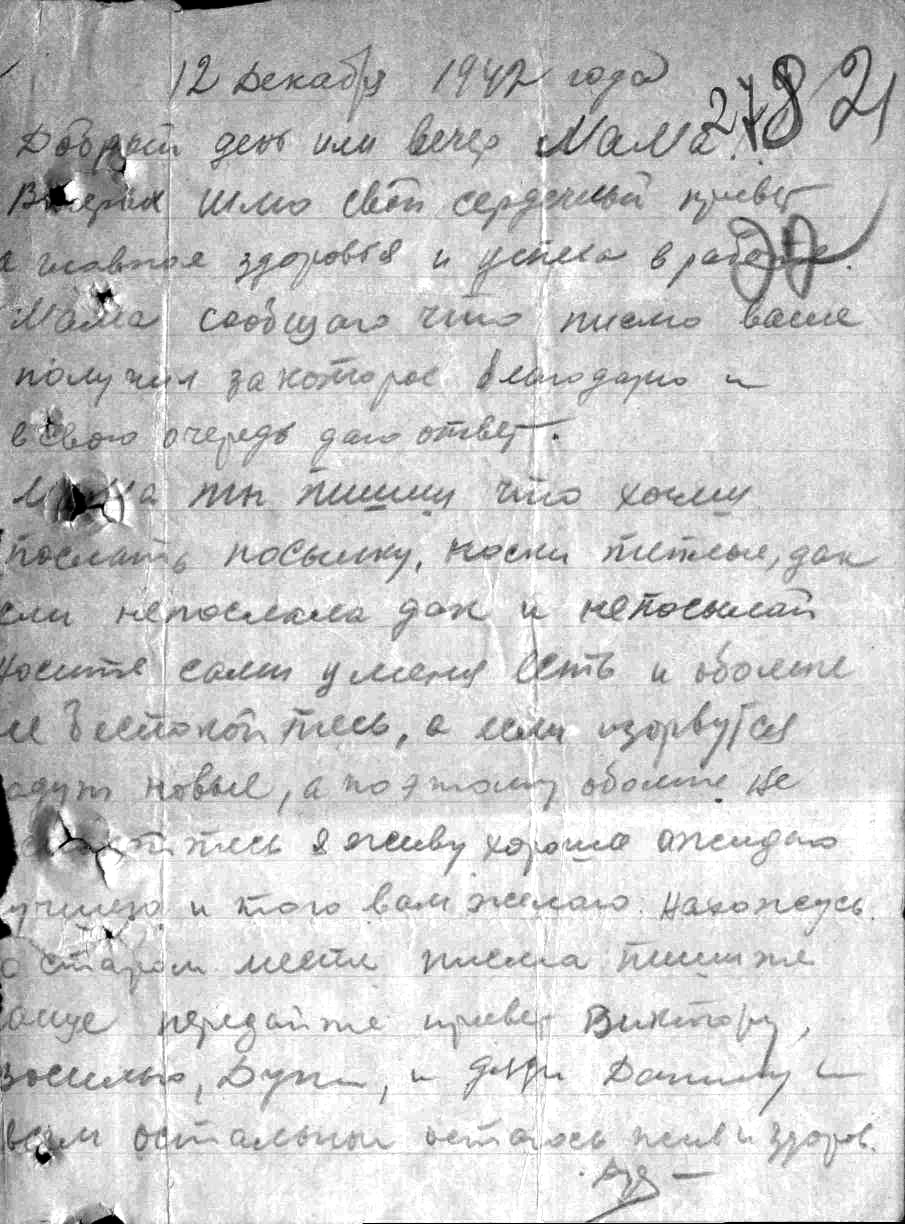 12 Декабря 1942 года
2782
Добрый день или вечер Мама!
Впервых шлю свой сердечный привет
а главное здоровья и успеха в работе.
Мама сообщаю что писмо ваше
получил за которое благодарю и
в свою очередь даю ответ.
Мама ты пишиш что хочиш
послать посылку, носки теплые, дак
если непослала дак и непосылай
носите сами у меня есть и обомне
не беспокойтесь, а если изорвутся
дадут новые, а поэтому обомне не
беспокойтесь я живу хорошо ожидаю
лучшего и того вам желаю. Нахожусь
на старом месте писма пишите
чаще передайте привет Виктору,
Василью, Дуни, и дяди Данилу и
всем остальным остаюсь жив и здоров.